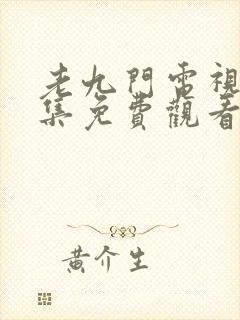 老九門電視
集免費觀看
黃介生